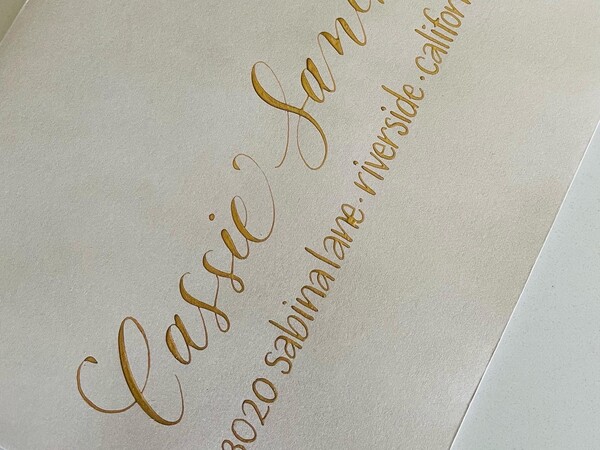 Cassie San
3020 Sabina lane · riverside · califor